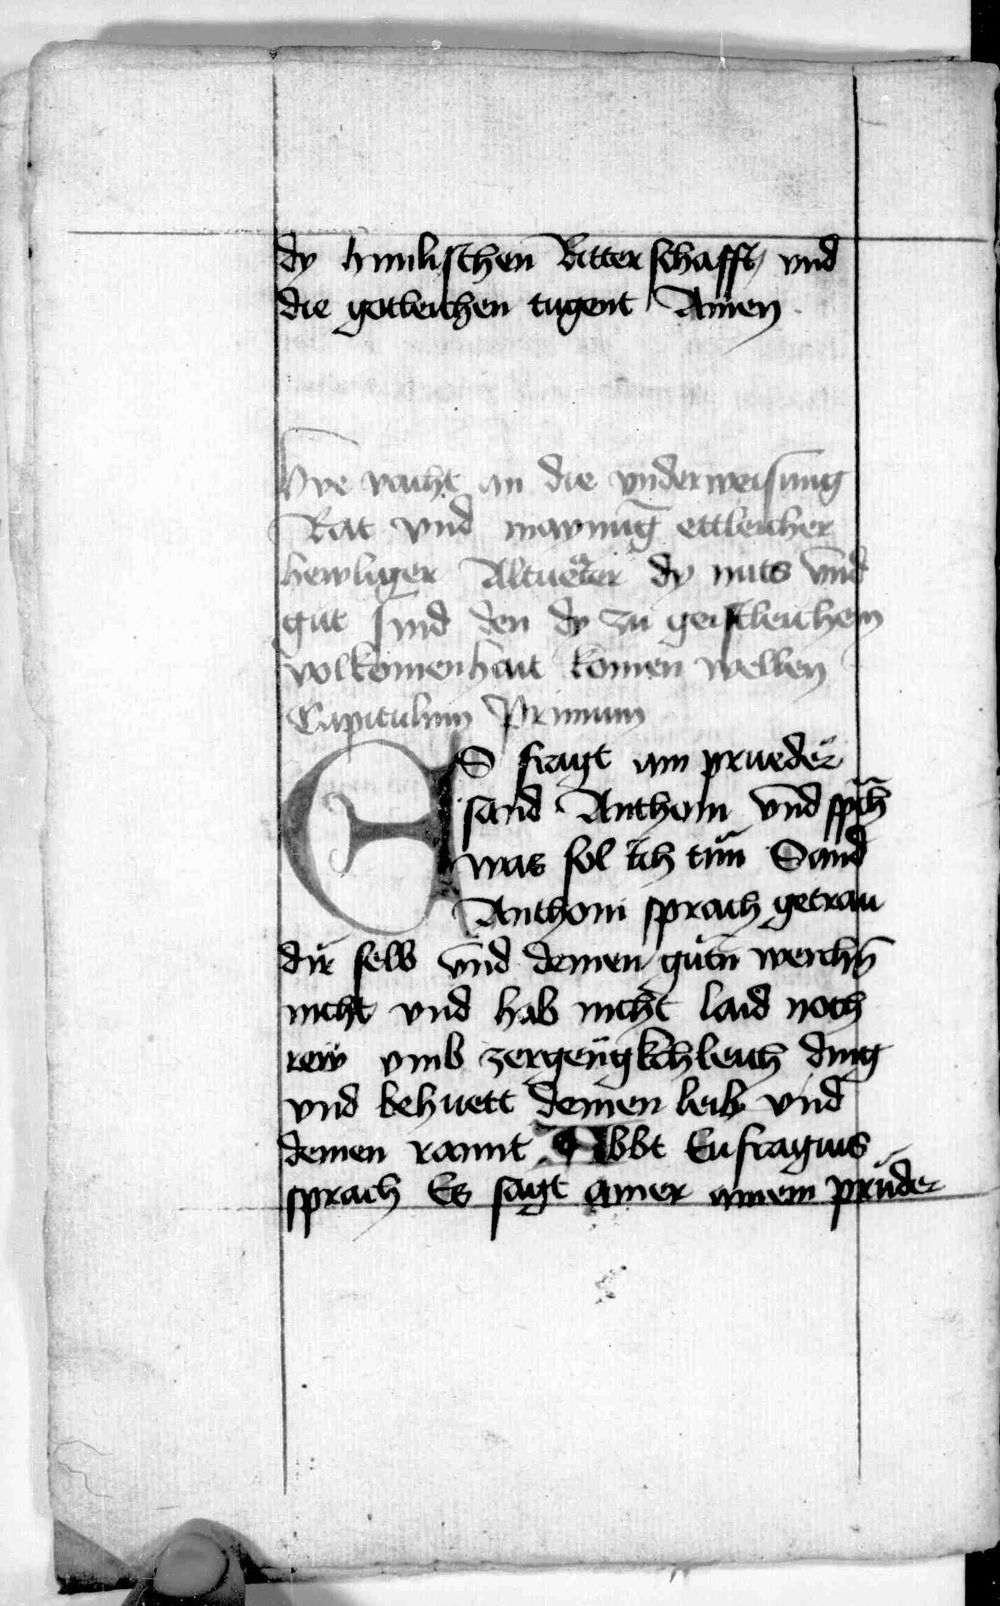 dy himlischen Ritterschafft vnd
die gotleichen tugent Amen
Hye vacht an die vnderweisung
Rat vnd maynung ettleicher
heyliger Altueter dy nutz vnd
gut sind den dy zu geistleichem
volkomenhait komen wellen
Capitulum Primum
ES fragt ain prueder
sand Anthoni vnd sprach
was sol ich tun Sand
Anthoni sprach getrau
dir selb vnd deinen gutn werchn
nicht vnd hab nicht laid noch
rew vmb zergengkchleich ding
vnd behuett deinen leib vnd
deinen Abbt Eufragius
sprach Es sagt ainer ainem pruder